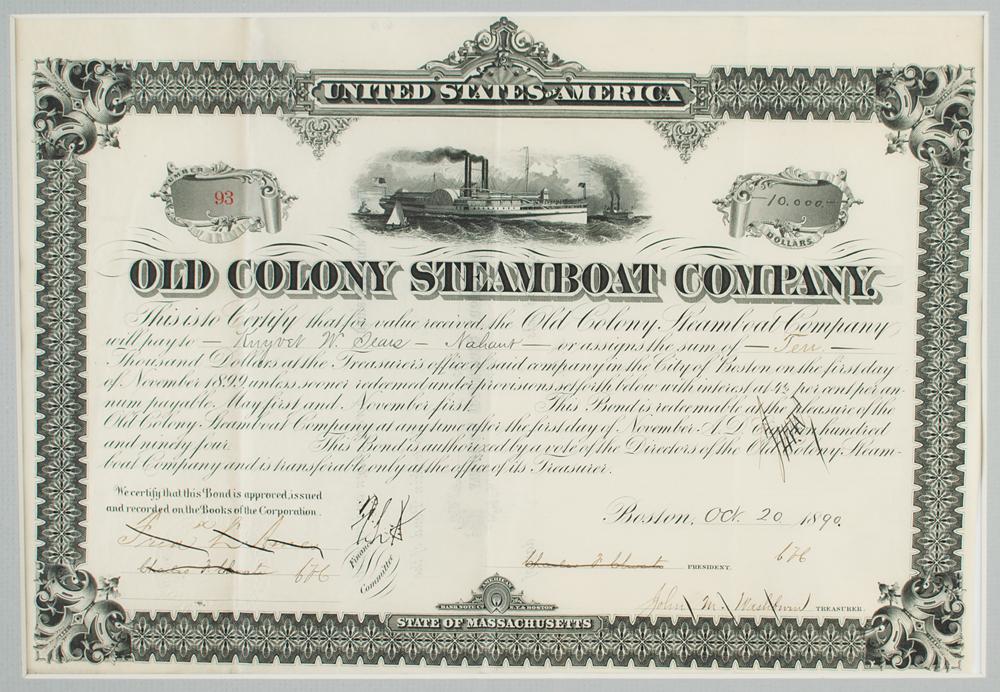 UNITED STATES OF AMERICA
NUMBER
93
10.000.
DOLLARS.
OLD COLONY STEAMBOAT COMPANY.
This is to Certify that for value received, the Old Colony Steamboat Company
will pay to — W. Sears — Nahant — or assigns the sum of — Ten —
Thousand Dollars at the Treasurer's office of said company in the City of Boston on the first day
of November 1899 unless sooner redeemed under provisions set forth below with interest at per cent per an-
num payable, May first and November first. This Bond is redeemable at the pleasure of the
Old Colony Steamboat Company at any time after the first day of November A.D. hundred
and ninety four. This Bond is authorized by a vote of the Directors of the Old Colony Steam-
boat Company and is transferable only at the office of its Treasurer.
We certify that this Bond is approved, issued
and recorded on the Books of the Corporation.
Finance
Committee
Boston, Oct. 20 1890.
Charles F. Choate
Charles F. Choate PRESIDENT.
John M. Washburn TREASURER.
AMERICAN
BANK NOTE CO. N.Y. & BOSTON
STATE OF MASSACHUSETTS